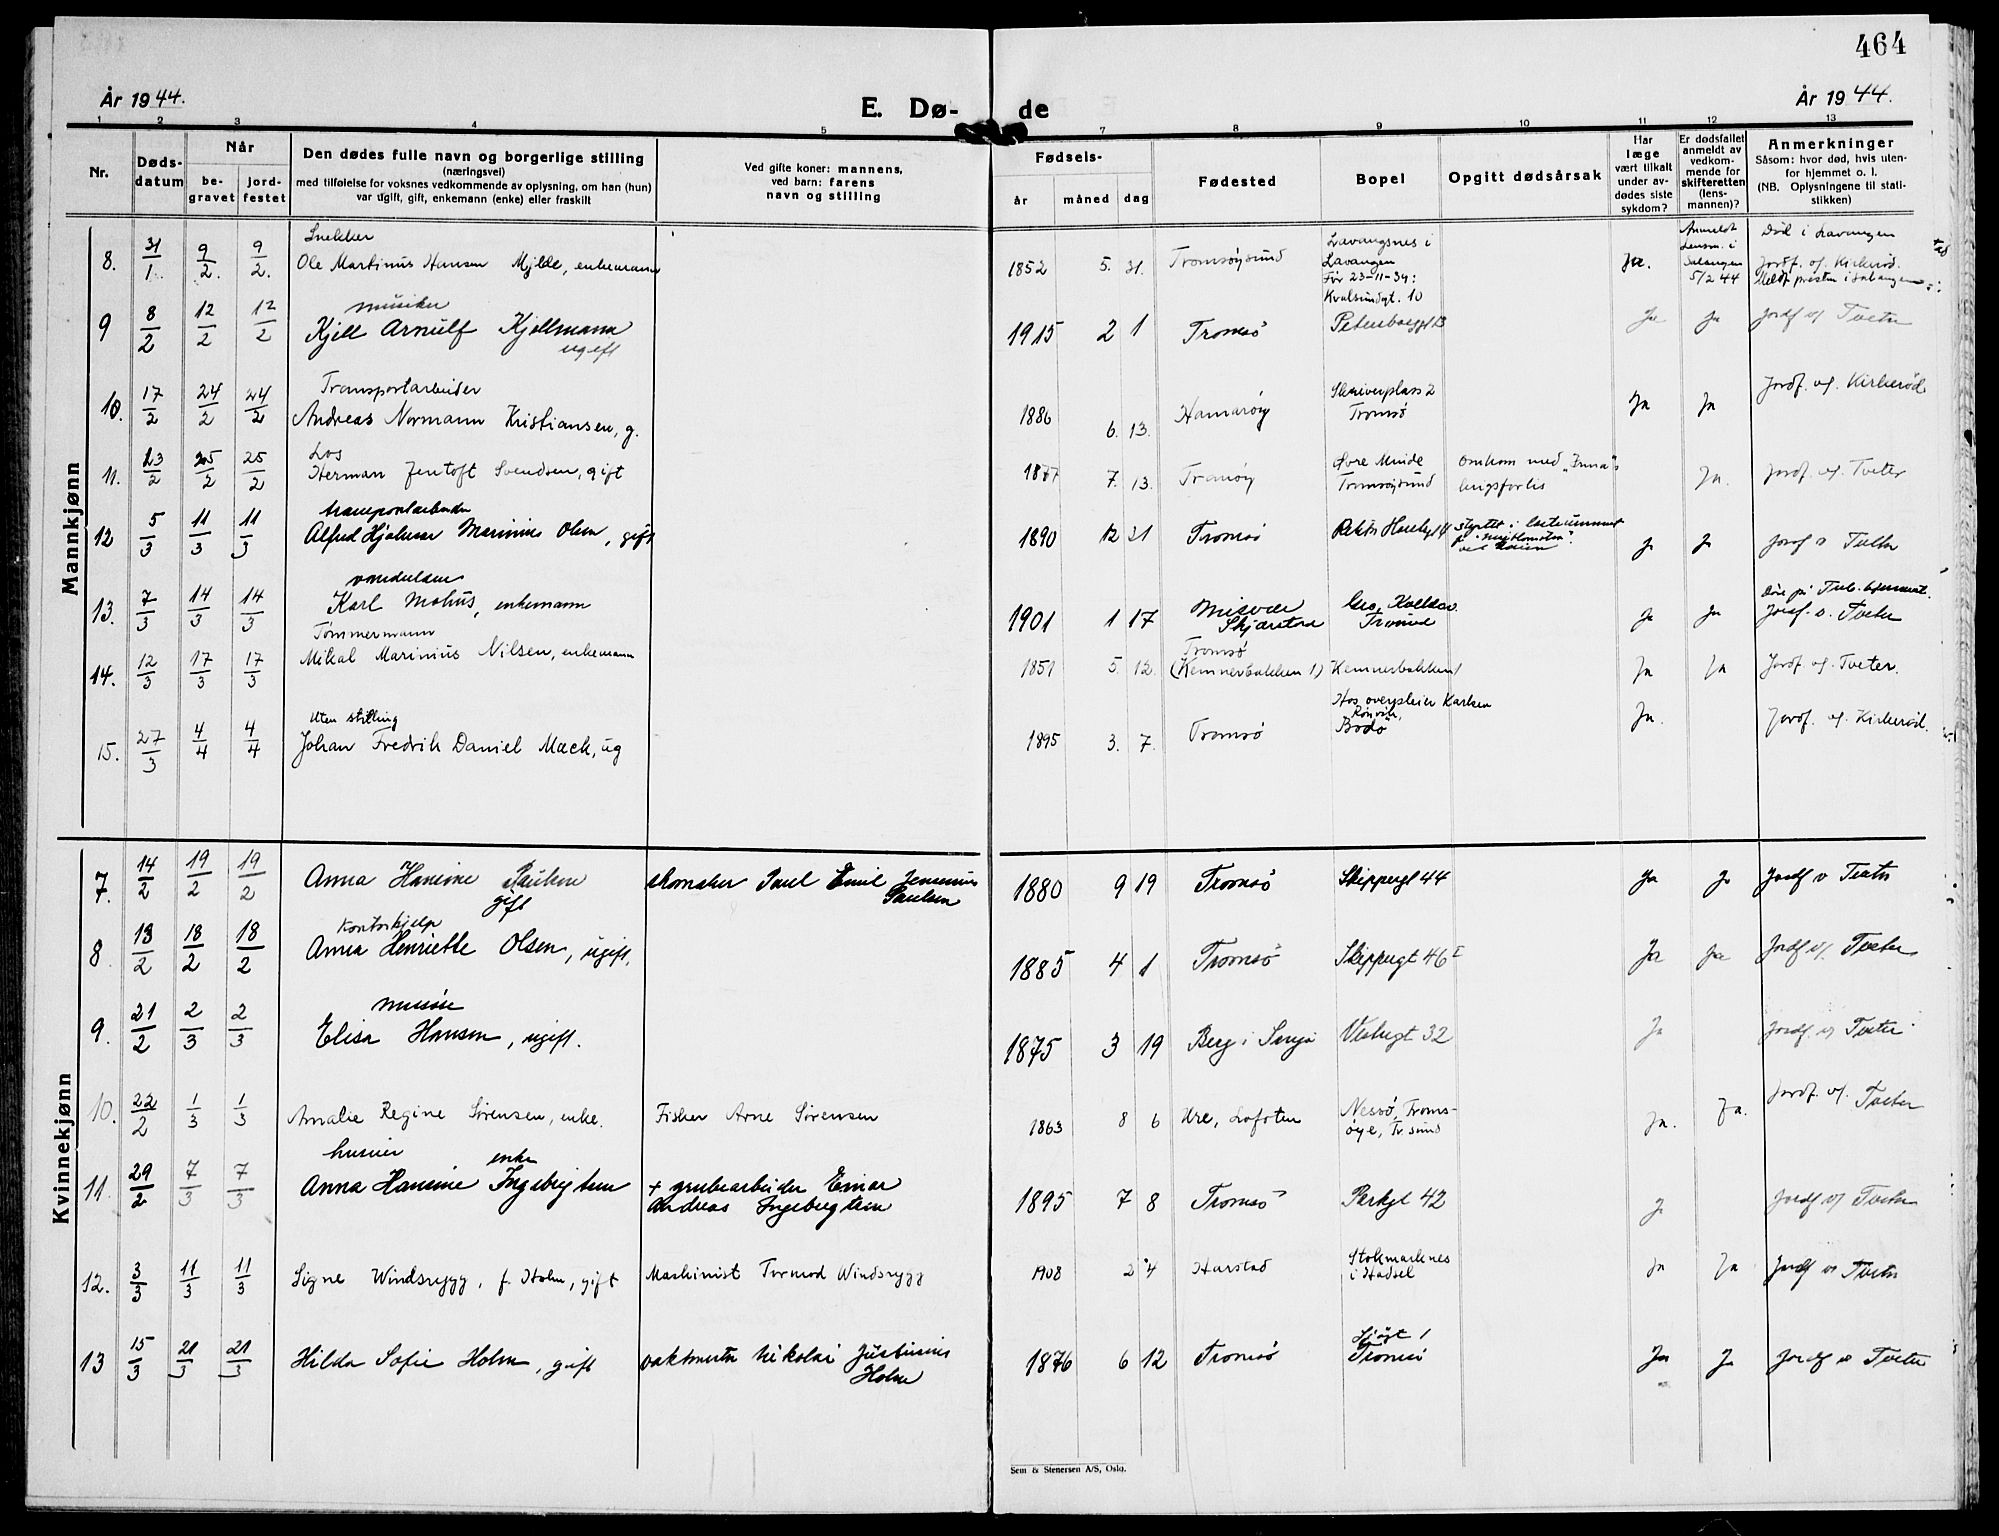 464
År 1944.
E. Dø-
de
År 1944.
1 2 3 4 5 7 8 9 10 11 12 13
Nr.
Døds-
datum
Når
be-
gravet
jord-
festet
Den dødes fulle navn og borgerlige stilling
(næringsvei)
med tilføielse for voksnes vedkommende av oplysning, om han (hun)
var ugift, gift, enkemann (enke) eller fraskilt
Ved gifte koner: mannens,
ved barn: farens
navn og stilling
Fødsels-
år måned dag
Fødested
Bopel
Opgitt dødsårsak
Har
læge
vært tilkalt
under av-
dødes siste
sykdom?
Er dødsfallet
anmeldt av
vedkom-
mende for
skifteretten
(lens-
mannen)?
Anmerkninger
Såsom: hvor død, hvis uten-
for hjemmet o. l.
(NB. Oplysningene til stati-
stikken)
Mannkjønn
Snekker
8. 31/1 9/2. 9/2. Ole Martinus Hansen Mjelde, enkemann 1852 5. 31. Tromsøysund
Lavangsnes i
Lavangen
Før 23-11-34:
Kvalsundgt. 10
Ja.
Anmeldt
lensm. i
Salangen
5/2 44
Død i Lavangen
Jordf. af. Kirkerød.
musiker
9 8/2 12/2 12/2 Kjell Arnulf Kjellmann
ugift
1915 2 1 Tromsø Ja Ja Jordf v/ Tveter
Transportarbeider
10. 17/2 24/2 24/2 Andreas Normann Kristiansen, g. 1886 6. 13. Hamarøy
Skriverplass 2
Tromsø
Ja Ja Jordf. af. Kirkerød.
Los
11. 23/2 25/2 25/2 Herman Jentoft Svendsen, gift 1877 7. 13. Tranøy
Øvre Minde
Tromsøysund
omkom med
krigsforlis
Ja. Jordf. af. Tveter
transportarbeider
12 5/3 11/3 11/3 Alfred Hjalmar Marinius Olsen, gift 1890 12 31 Tromsø
styrtet i lasterummet
Ja Ja Jordf v Tveter
13. 7/3 14/3 14/3 Karl Mohus, enkemann 1901 1 17 Misvær
Skjærstad
Ja Ja
Død på Tub.hjemmet.
Jordf. v. Tveter
Tømmermann
14. 12/3 17/3 17/3 Mikal Marinius Nilsen, enkemann 1851 5. 12.
Tromsø
(Kemnerbakken 1) Kemnerbakken 1
Ja Ja Jordf. af. Tveter.
Uten stilling
15. 27/3 4/4 4/4 Johan Fredrik Daniel Mack, ug 1895 3. 7. Tromsø
Hos overpleier Karlsen
Rønvik,
Bodø
Ja. Jordf. af. Kirkerød.
Kvinnekjønn
7. 14/2 19/2 19/2 Anna Hansine Paulsen
gift
skomaker Paul Emil Jensenius
Paulsen
1880 9 19 Tromsø Skippergt 44 Ja Ja Jordf v Tveter
Kontorhjelp
8. 13/2 18/2 18/2 Anna Henriette Olsen, ugift. 1885 4 1 Tromsø Skippergt 46 I Ja Ja Jordf v/. Tveter
9. 21/2 2/3 2/3 Elisa Hansen, ugift. 1875 3 19 Berg i Senja Vestregt 32 Ja Jordf. v/ Tveter
10. 22/2 1/3 1/3 Amalie Regine Sørensen, enke. Fisker Arne Sørensen 1863 8 6 Ure, Lofoten
Nessø, Troms-
øye, Tr.sund
Ja. Ja. Jordf. v/. Tveter
husvier
enke
11. 29/2 7/3 7/3 Anna Hansine Ingebrigtsen + grubearbeider Einar
Andreas Ingebrigtsen
1895 7 8 Tromsø Parkgt 42 Ja Jordf v/ Tveter
12. 3/3 11/3 11/3 Signe Windsrygg, f. Holm, gift Maskinist Tormod Windsrygg 1908 2 4 Harstad
Stokmarknes
i Hadsel
Ja Ja Jordf v Tveter
13 15/3 21/3 21/3 Hilda Sofie Holm, gift vaktmester Nikolai Justinius
Holm
1876 6 12 Tromsø
Sjøgt 1
Tromsø
Ja Ja Jordf v Tveter
Sem & Stenersen A/S, Oslo.